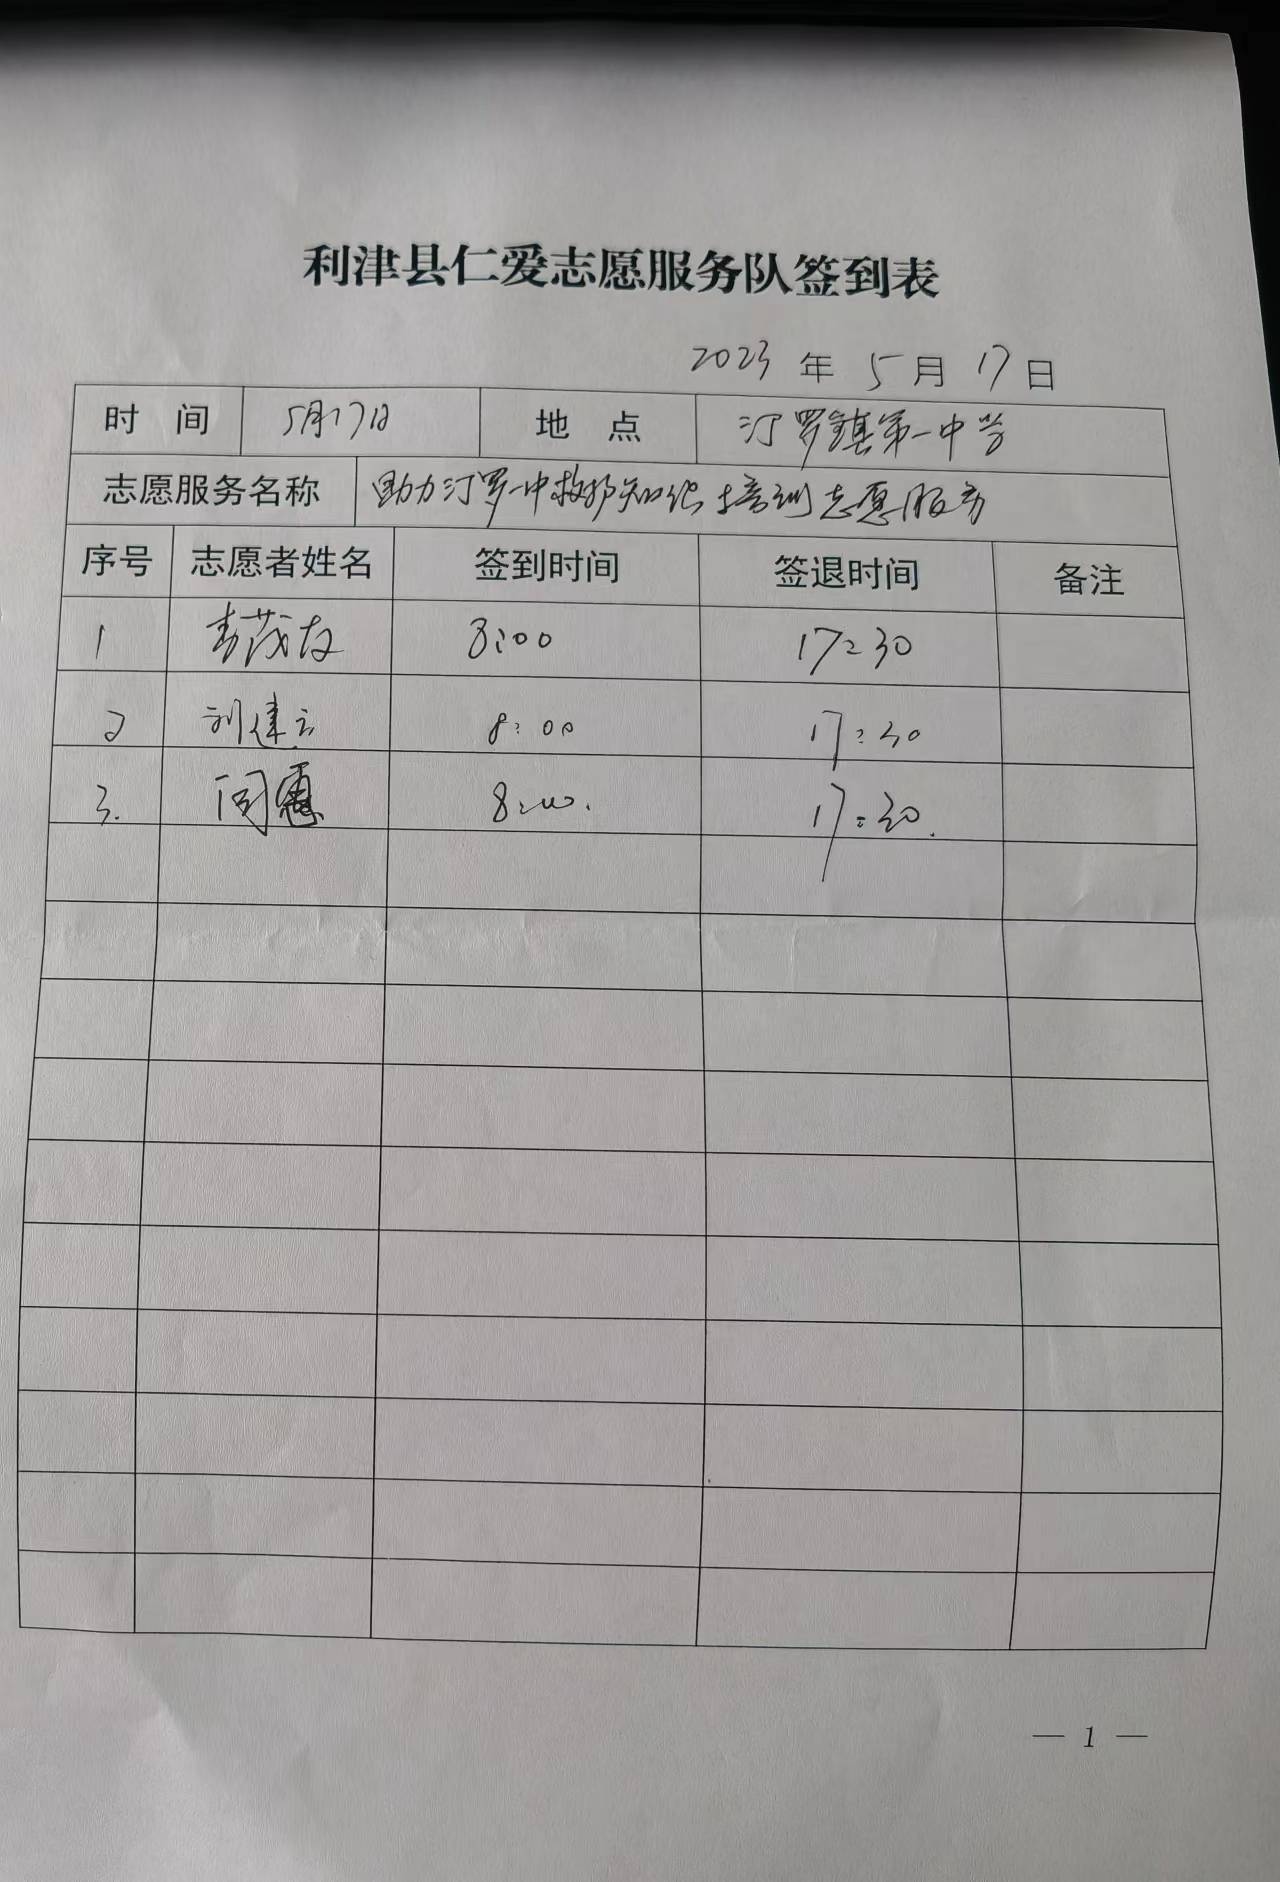 利津县仁爱志愿服务队签到表
2023 年 5 月 17 日
时 间 5月17日 地 点 汀罗镇第一中学
志愿服务名称 助力汀罗一中救护知识培训志愿服务
序号 志愿者姓名 签到时间 签退时间 备注
1 8:00 17:30
2 刘建云 8:00 17:30
3. 闫惠 8:00. 17:30.
— 1 —